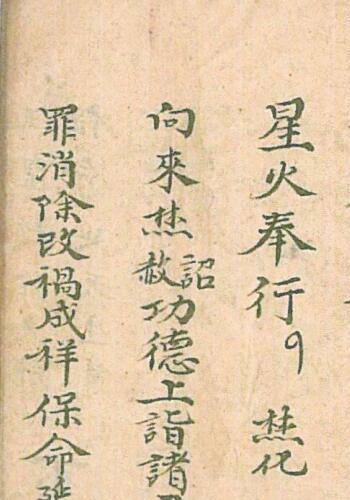 星火奉行 焚化
向來焚詔赦功德上詣諸
罪消除改禍成祥保命延